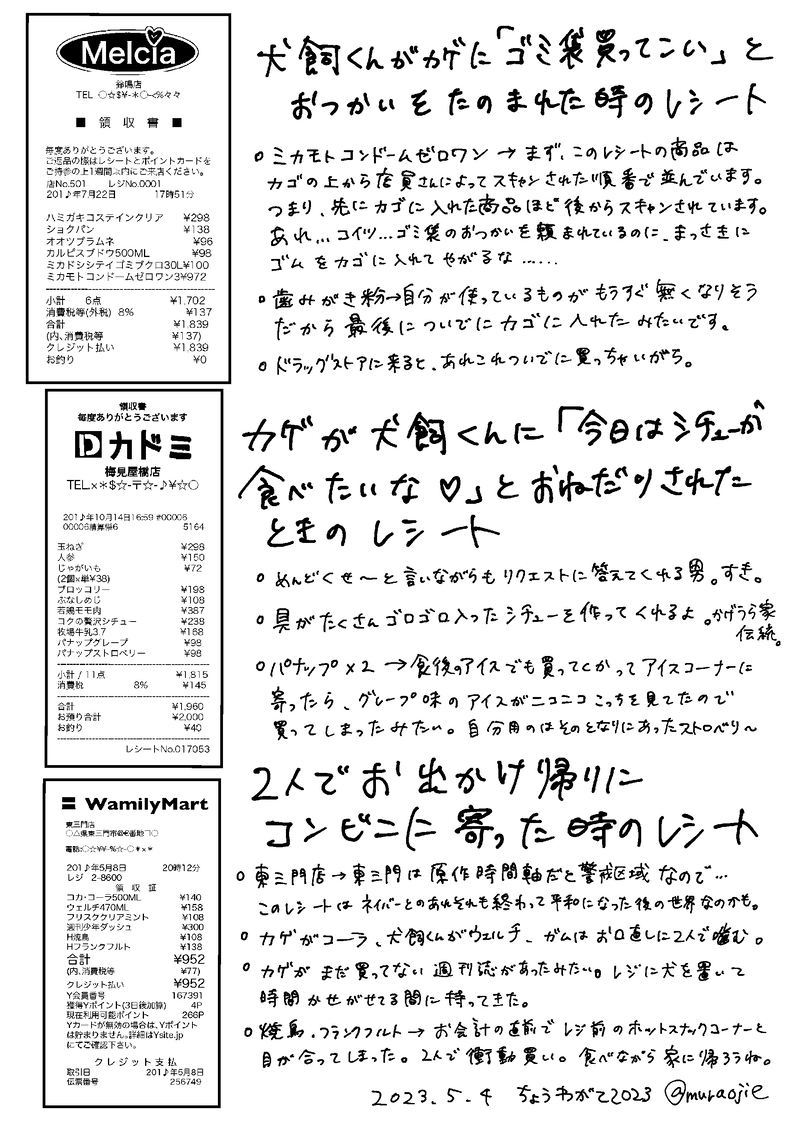 Melcia
鈴鳴店
TEL ○☆$¥-＊○-<%々々
■ 領 収 書 ■
毎度ありがとうございます。
ご返品の際はレシートとポイントカードを
ご持参の上1週間以内にご来店ください。
店No.501 レジNo.0001
201♪年7月22日 17時51分
ハミガキコステインクリア ¥298
ショクパン ¥138
オオツブラムネ ¥96
カルピスブドウ500ML ¥98
ミカドシシテイゴミブクロ30L ¥100
ミカモトコンドームゼロワン3 ¥972
小計 6点 ¥1,702
消費税等(外税) 8% ¥137
合計 ¥1,839
(内、消費税等 ¥137)
クレジット払い ¥1,839
お釣り ¥0
犬飼くんがカゲに「ゴミ袋買ってこい」と
おつかいをたのまれた時のレシート
○ ミカモトコンドームゼロワン → まず、このレシートの商品は
カゴの上から店員さんによってスキャンされた順番で並んでいます。
つまり、先にカゴに入れた商品ほど後からスキャンされています。
あれ…コイツ…ゴミ袋のおつかいを頼まれているのに、まっさきに
ゴムをカゴに入れてやがるな……
○ 歯みがき粉→自分が使っているものがもうすぐ無くなりそう
だから最後についでにカゴに入れたみたいです。
○ ドラッグストアに来ると、あれこれついでに買っちゃいがち。
領収書
毎度ありがとうございます
D カドミ
梅見屋橋店
TEL.×＊$☆-〒☆-♪¥☆○
201♪年10月14日16:59 #00006
00006精算機6 5164
玉ねぎ ¥298
人参 ¥150
じゃがいも ¥72
(2個×単¥38)
ブロッコリー ¥198
ぶなしめじ ¥108
若鶏モモ肉 ¥387
コクの贅沢シチュー ¥238
牧場牛乳3.7 ¥168
パナップグレープ ¥98
パナップストロベリー ¥98
小計 / 11点 ¥1,815
消費税 8% ¥145
合計 ¥1,960
お預り合計 ¥2,000
お釣り ¥40
レシートNo.017053
カゲが犬飼くんに「今日はシチューが
食べたいな♡」とおねだりされた
ときのレシート
○ めんどくせ〜と言いながらもリクエストに答えてくれる男。すき。
○ 具がたくさんゴロゴロ入ったシチューを作ってくれるよ。かげうら家
伝統。
○ パナップ×2 → 食後のアイスでも買ってくかってアイスコーナーに
寄ったら、グレープ味のアイスがニコニコこっちを見てたので
買ってしまったみたい。自分用のはそのとなりにあったストロベリ〜
WamilyMart
東三門店
○△県東三門市@€番地〒○
電話:○☆¥¥-%☆-○＊×＊
201♪年5月8日 20時12分
レジ 2-8600
領 収 証
コカ・コーラ500ML ¥140
ウェルチ470ML ¥158
フリスククリアミント ¥108
週刊少年ダッシュ ¥300
H焼鳥 ¥108
Hフランクフルト ¥138
合計 ¥952
(内、消費税等 ¥77)
クレジット払い ¥952
Y会員番号 167391
獲得Yポイント(3日後加算) 4P
現在利用可能ポイント 266P
Yカードが無効の場合は、Yポイント
は貯まりません。詳細はYsite.jp
にてご確認下さい。
クレジット支払
取引日 201♪年5月8日
伝票番号 256749
2人でお出かけ帰りに
コンビニに寄った時のレシート
○ 東三門店→東三門は原作時間軸だと警戒区域なので…
このレシートはネイバーとのあれそれも終わって平和になった後の世界なのかも。
○ カゲがコーラ、犬飼くんがウェルチ、ガムはお口直しに2人で噛む。
○ カゲがまだ買ってない週刊誌があったみたい。レジに犬を置いて
時間かせがせてる間に持ってきた。
○ 焼鳥・フランクフルト→お会計の直前でレジ前のホットスナックコーナーと
目が合ってしまった。2人で衝動買い。食べながら家に帰ろうね。
2023.5.4 ちょうわがて2023 @muraojie